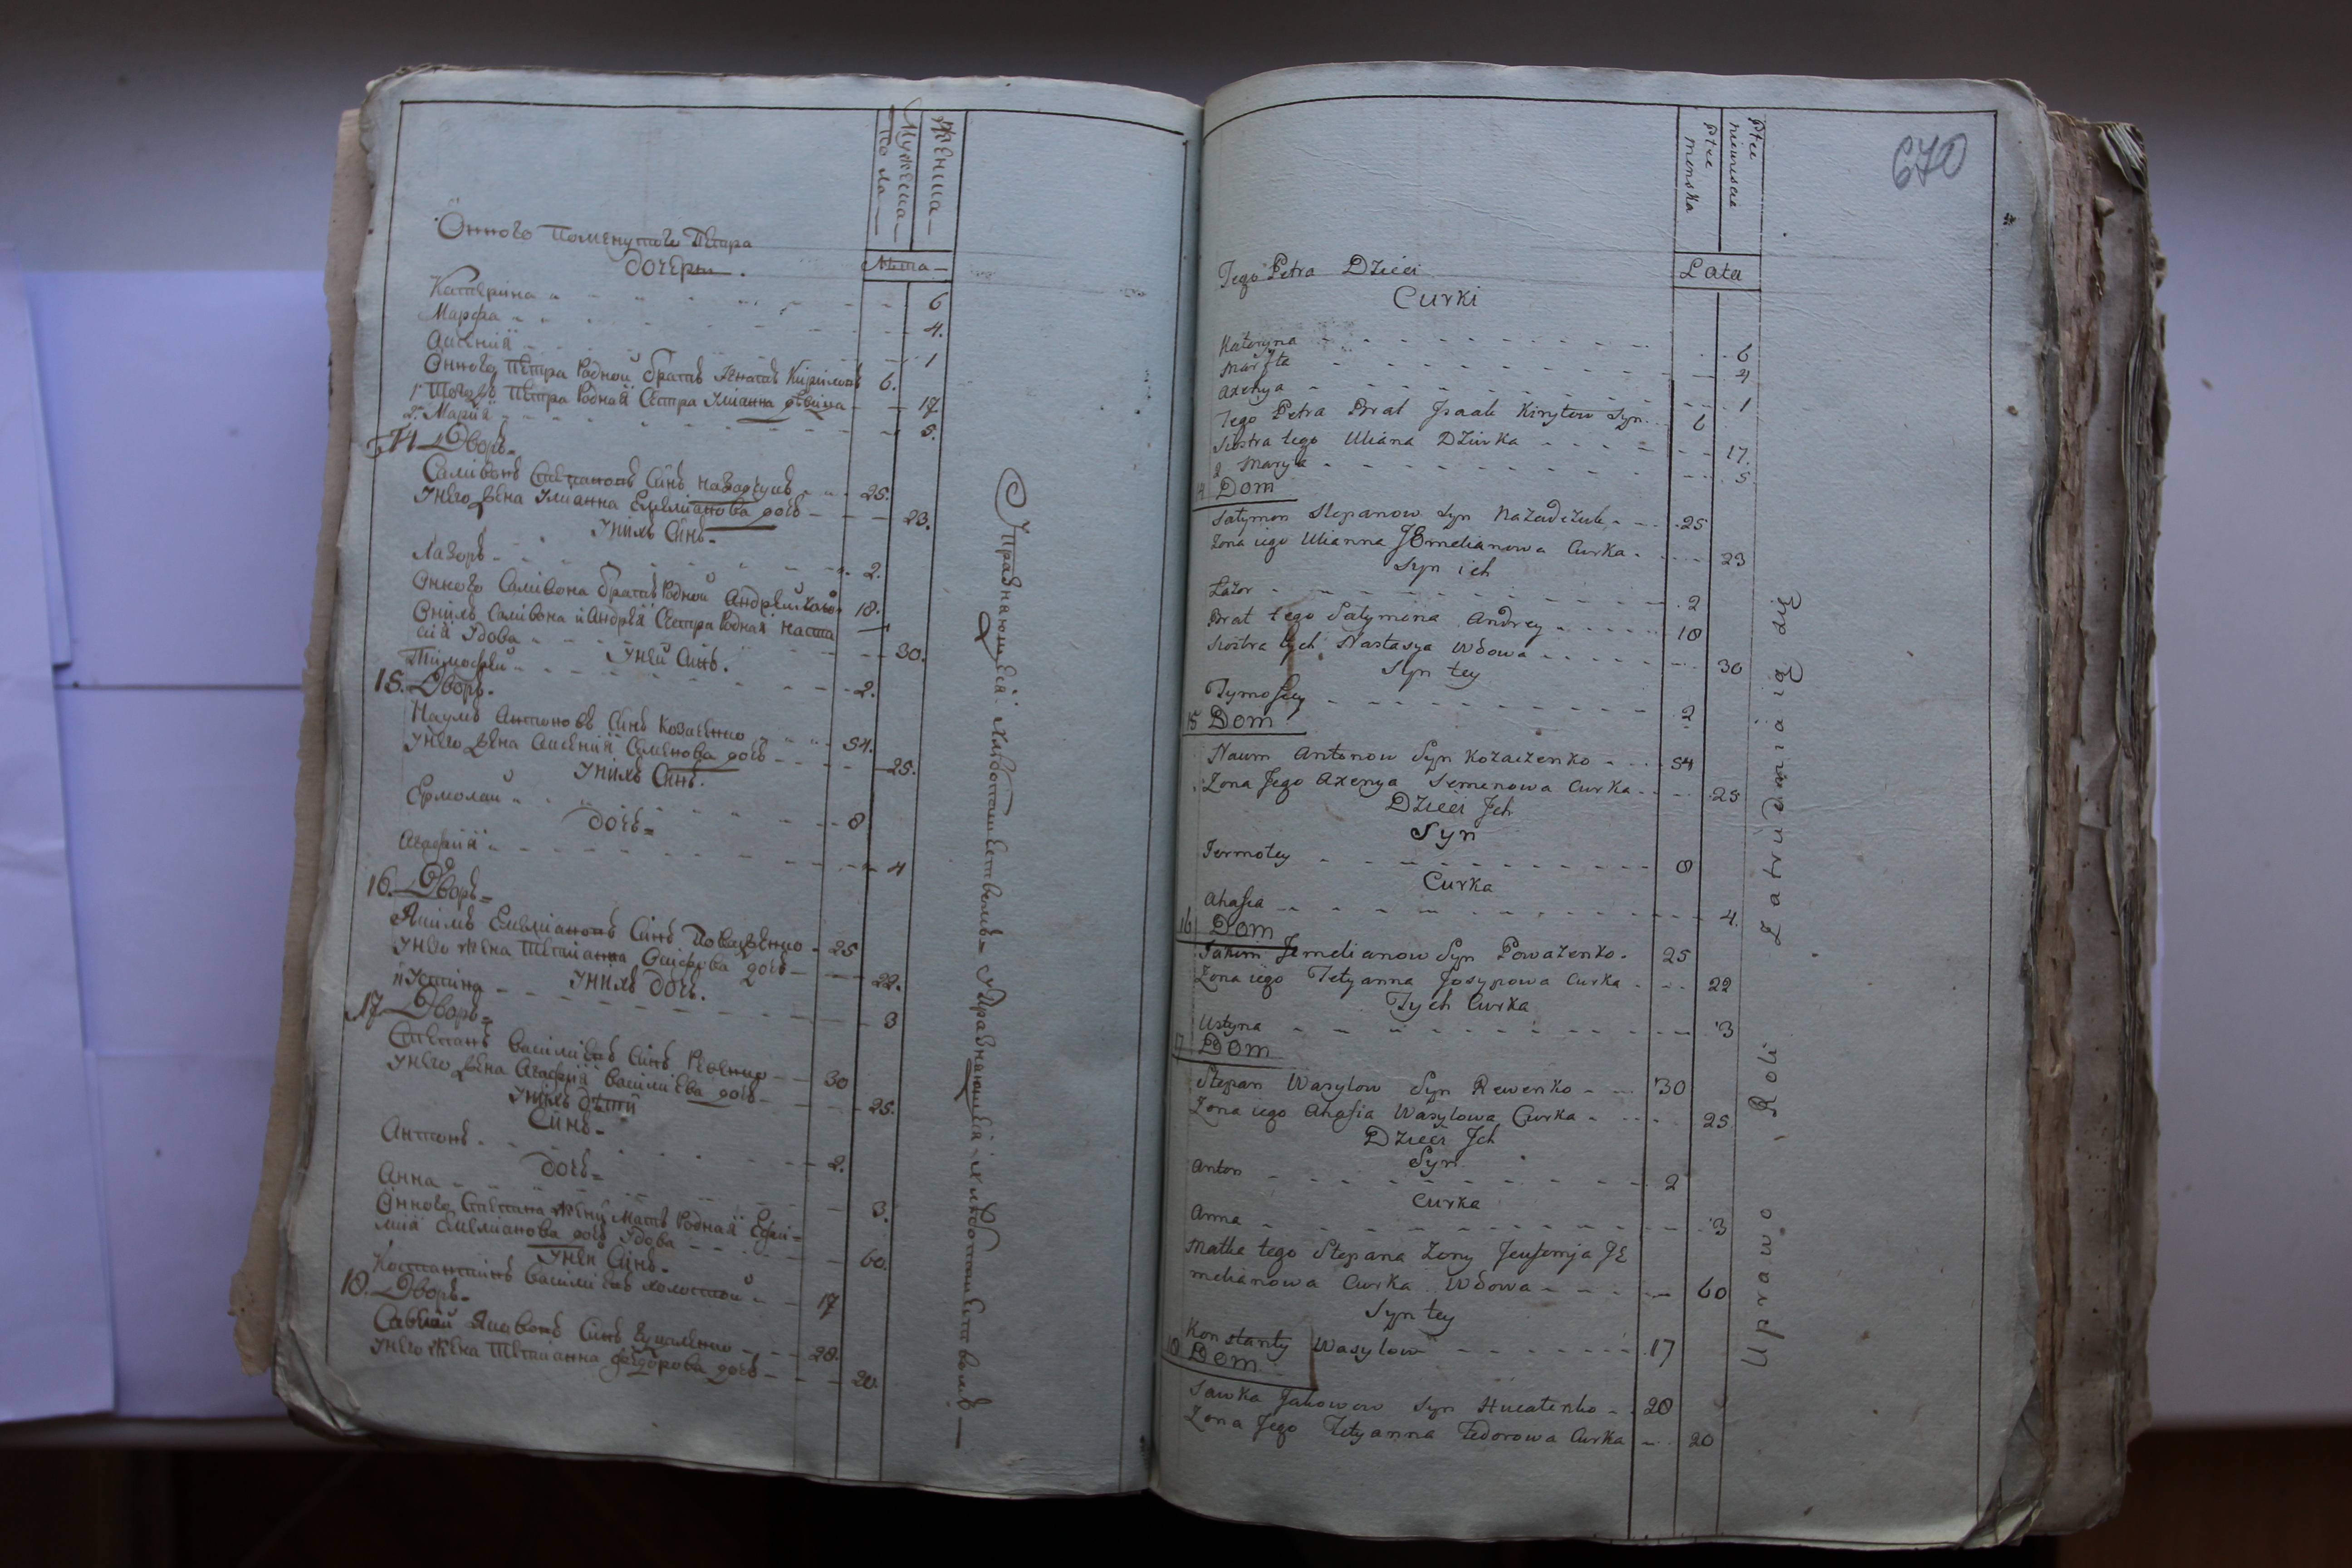 Женска
Мужеска
пола
Лѣта
Онного Поменутого Петра
дочери.
Катерина 6
Марфа 4.
Аксения 1
Онного Петра Родной братъ Кириловъ 6.
1 Тогожъ Петра Родная Сестра Улианна девка 17
2. Мария 5.
14 Дворъ
Саливонъ Степановъ Синъ 25.
Унего Жена Улианна Емелианова дочь 23.
Унихъ Синъ
Лазоръ 2.
Онного Саливона братъ Родной Андрей 18.
Онихъ Саливона и Андрея Сестра Родная Наста
сия Удова 30.
Уней Синъ.
Тимофей 2.
15. Дворъ.
Наумъ Антоновъ Синъ Козаченко 54.
Унего Жена Аксения Семенова дочь 25.
Унихъ Синъ.
Ермолай 8
дочь
Агафия 4
16. Дворъ
Якимъ Емелиановъ Синъ Поваженко 25
Унего Жена Тетианна Осифова дочь 22.
Унихъ дочь.
Иустина 3
17 Дворъ
Степанъ Василиевъ Синъ Ревенко 30
Унего Жена Агафия Василиева дочь 25.
Унихъ дети
Синъ
Антонъ 2.
дочь
Анна 3.
Онного Степана Жены Мать Родная Ефи-
мия Емелианова дочь Удова 60.
Уней Синъ
Костантинъ Василиевъ холостой 17
18. Дворъ
Савка Яковъ Синъ Гуцаленко 28.
Унего Жена Тетианна Федорова дочь 20.
Упражняющеися хлебопашествомъ Упражняющеися хлебопашествомъ
670
Płec niewiescia
Płec męnska
Lata
Tego Petra Dzieci
Curki
Kateryna 6
Marfta 4
Axenya 1
Tego Petra Brat Jsaak Kiryłow Syn 6
Siostra tego Uliana Dziwka 17.
2 Marya 5
14 Dom
Satymon Stepanow Syn Nazadczuk 25
Zona iego Ulianna JEmelianowa Curka 23
Syn ich
Łazor 2
Brat tego Satymona Andrey 18
Siostra tych Nastasya Wdowa 30
Syn tey
Tymofiey 2
15 Dom
Naum Antonow Syn Kozaczenko 54
Zona Jego Axenya Semenowa Curka 25
Dzieci Jch
Syn
Jermołey 8
Curka
Ahafia 4.
16 Dom
Jakim Jemelianow Syn Powazenko 25
Zona iego Tetyanna Josypowa Curka 22
Tych Curka
Ustyna 3
17 Dom
Stepan Wasylow Syn Rewenko 30
Zona iego Ahafia Wasylowa Curka 25
Dzieci Jch
Syn
Anton 2
Curka
Anna 3
Matka tego Stepana Zony Jeufemja JE
melianowa Curka Wdowa 60
Syn tey
Konstanty Wasylow 17
18 Dom
Sawka Jakowow Syn Hucalenko 28
Zona Jego Tetyanna Fedorowa Curka 20
Uprawo Roli Zatrudnia ią się